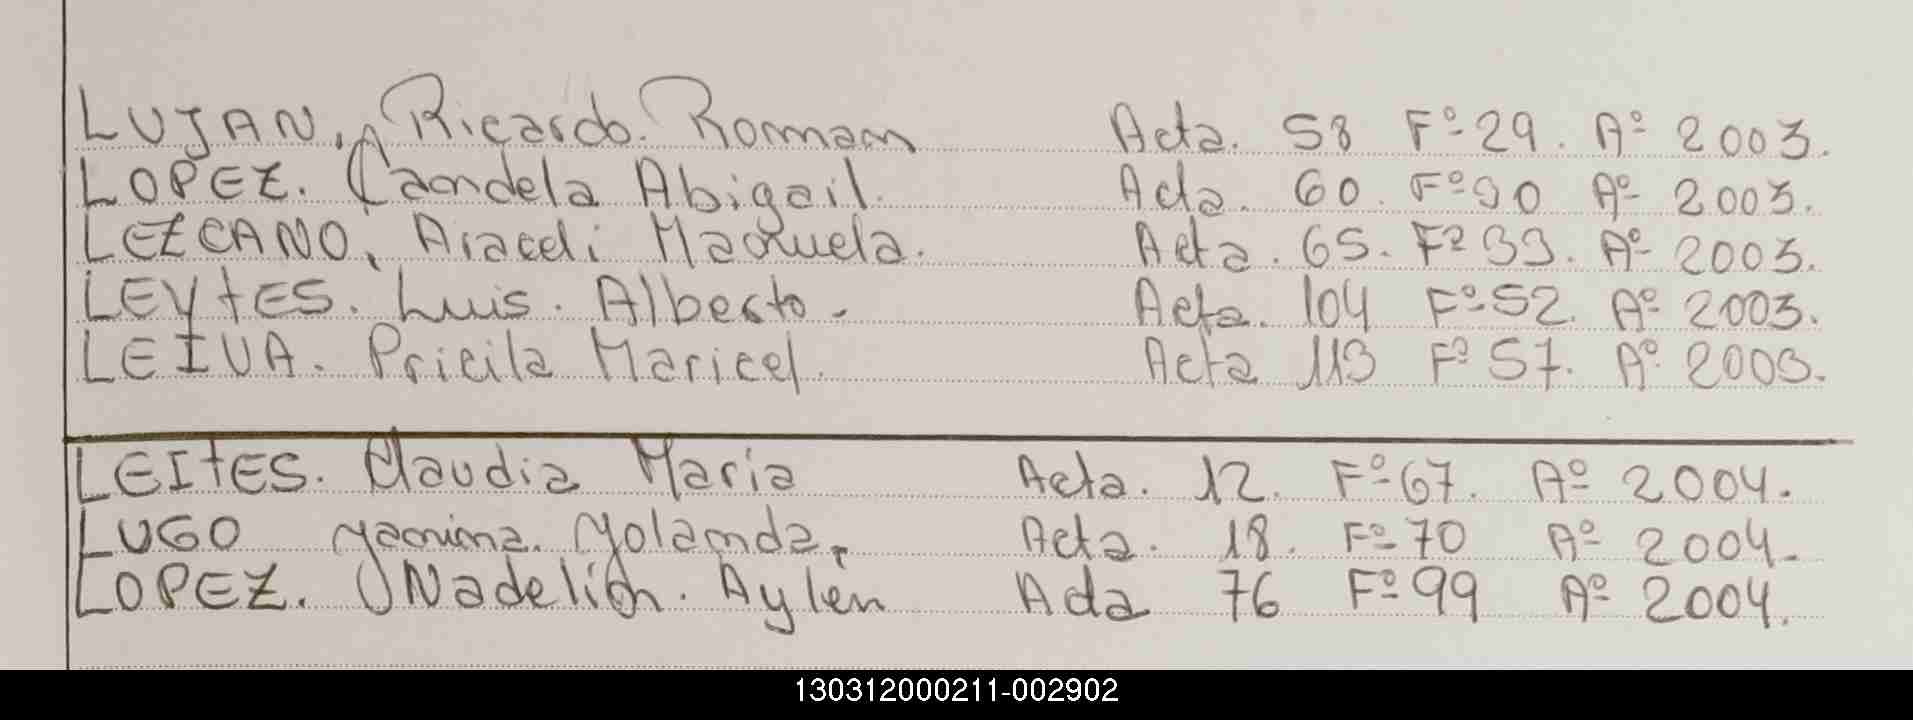 LUJAN, Ricardo. Roman Acta. 58 Fº 29. Aº 2003.
LOPEZ. Candela Abigail. Acta. 60. Fº 30 Aº 2003.
LEZCANO, Araceli Manuela. Acta. 65. Fº 33. Aº 2003.
LEYtES. Luis. Alberto. Acta. 104 Fº 52. Aº 2003.
LEIVA. Pricila Maricel. Acta 113 Fº 57. Aº 2003.
LEItES. Claudia Maria Acta. 12. Fº 67. Aº 2004.
LUGO Yamina. Yolanda. Acta. 18. Fº 70 Aº 2004.
LOPEZ. Aylén Acta 76 Fº 99 Aº 2004.
130312000211-002902